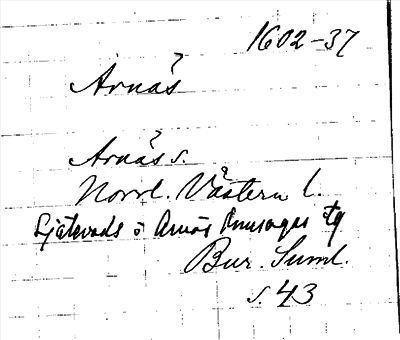 1602-37
Arnäs
Arnäs s.
Norrl. Västern l.
Själevads o Arnäs tg
Bur. Suml.
s. 43